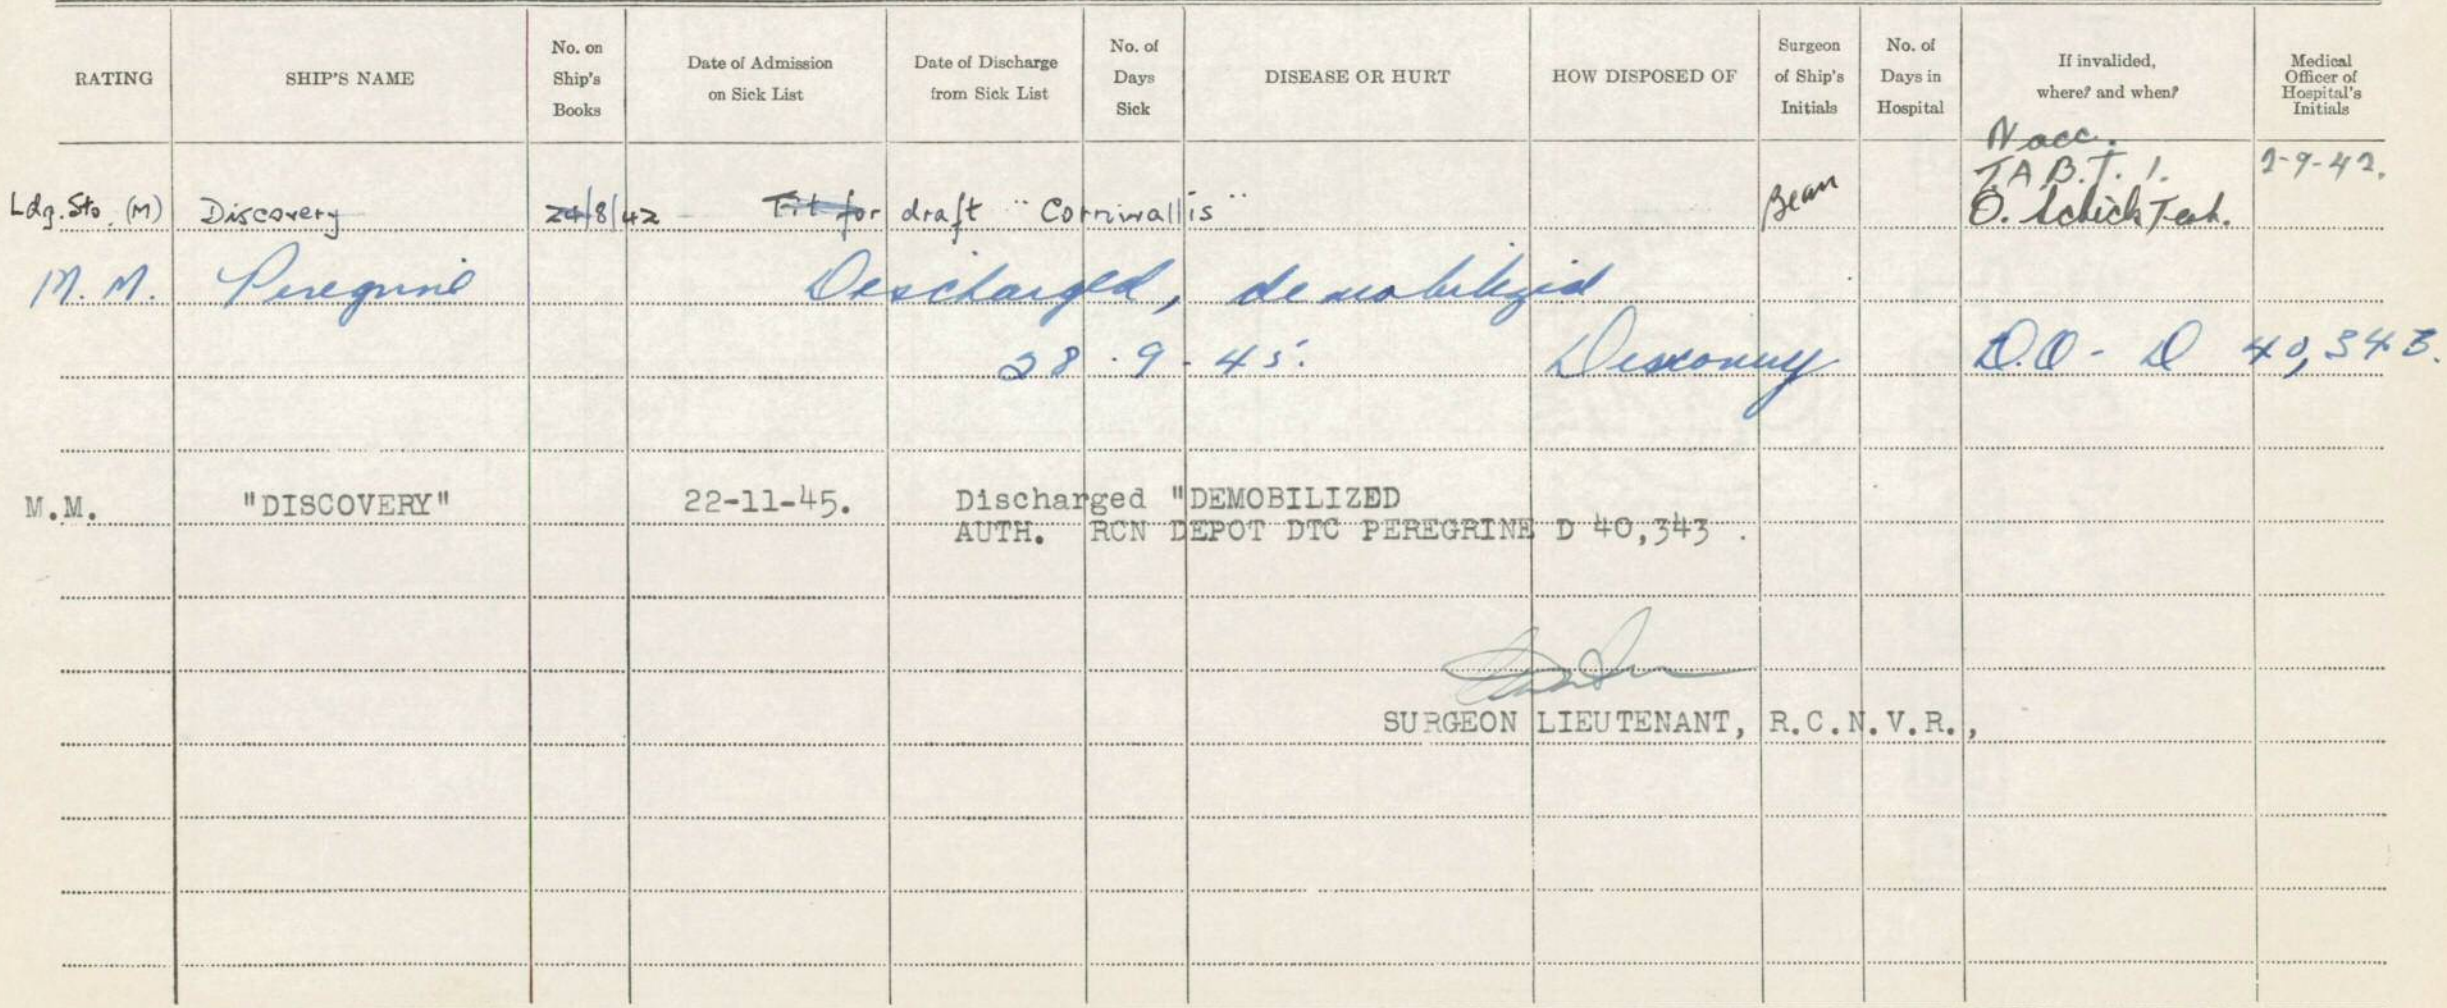 RATING SHIP'S NAME No. on Ship's Books Date of Admission on Sick List Date of Discharge from Sick List No. of Days Sick DISEASE OR HURT HOW DISPOSED OF Surgeon of Ship's Initials No. of Days in Hospital If invalided, where? and when? Medical Officer of Hospital's Initials
Vacc.
T.A.B.T. 1. 2-9-42.
Ldg. Sto. (M) Discovery 24/8/42 Fit for draft "Cornwallis" Bean O. Schick Test.
M.M. Peregrine Discharged, demobilized
28-9-45. Discovery D.O - D 40,343.
M.M. "DISCOVERY" 22-11-45. Discharged "DEMOBILIZED
AUTH. RCN DEPOT DTC PEREGRINE D 40,343 .
SURGEON LIEUTENANT, R.C.N.V.R.,